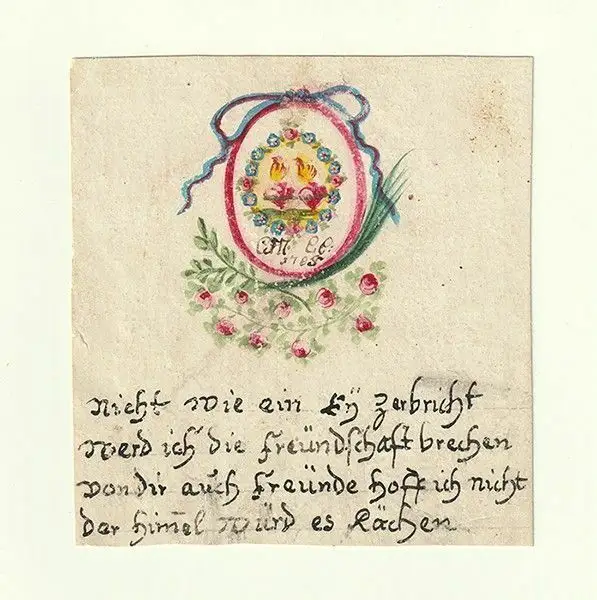 1785
Nicht wie ein Eÿ zerbricht
werd ich die freündschaft brechen
von dir auch freünde hoff ich nicht
der him̅el würd es Rächen